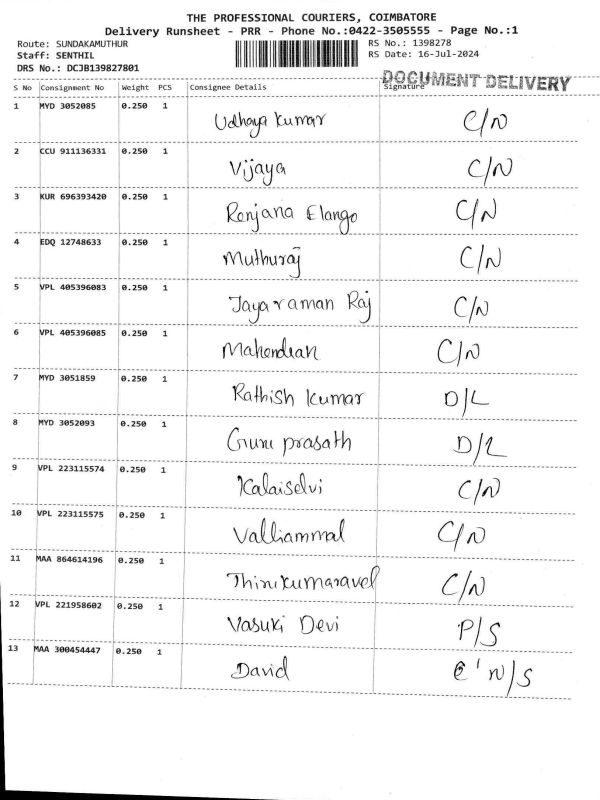 THE PROFESSIONAL COURIERS, COIMBATORE
Delivery Runsheet - PRR - Phone No.:0422-3505555 - Page No.:1
Route: SUNDAKAMUTHUR RS No.: 1398278
Staff: SENTHIL RS Date: 16-Jul-2024
DRS No.: DCJB139827801
DOCUMENT DELIVERY
S No Consignment No Weight PCS Consignee Details Signature
1 MYD 3052085 0.250 1 Udhaya Kumar C/N
2 CCU 911136331 0.250 1 Vijaya C/N
3 KUR 696393420 0.250 1 Renjana Elango C/N
4 EDQ 12748633 0.250 1 Muthuraj C/N
5 VPL 405396083 0.250 1 Jayaraman Raj C/N
6 VPL 405396085 0.250 1 Mahendran C/N
7 MYD 3051859 0.250 1 Rathish Kumar D/L
8 MYD 3052093 0.250 1 Guru prasath D/L
9 VPL 223115574 0.250 1 Kalaiselvi C/N
10 VPL 223115575 0.250 1 Valliammal C/N
11 MAA 864614196 0.250 1 Thirukumaravel C/N
12 VPL 221958602 0.250 1 Vasuki Devi P/S
13 MAA 300454447 0.250 1 David N/S